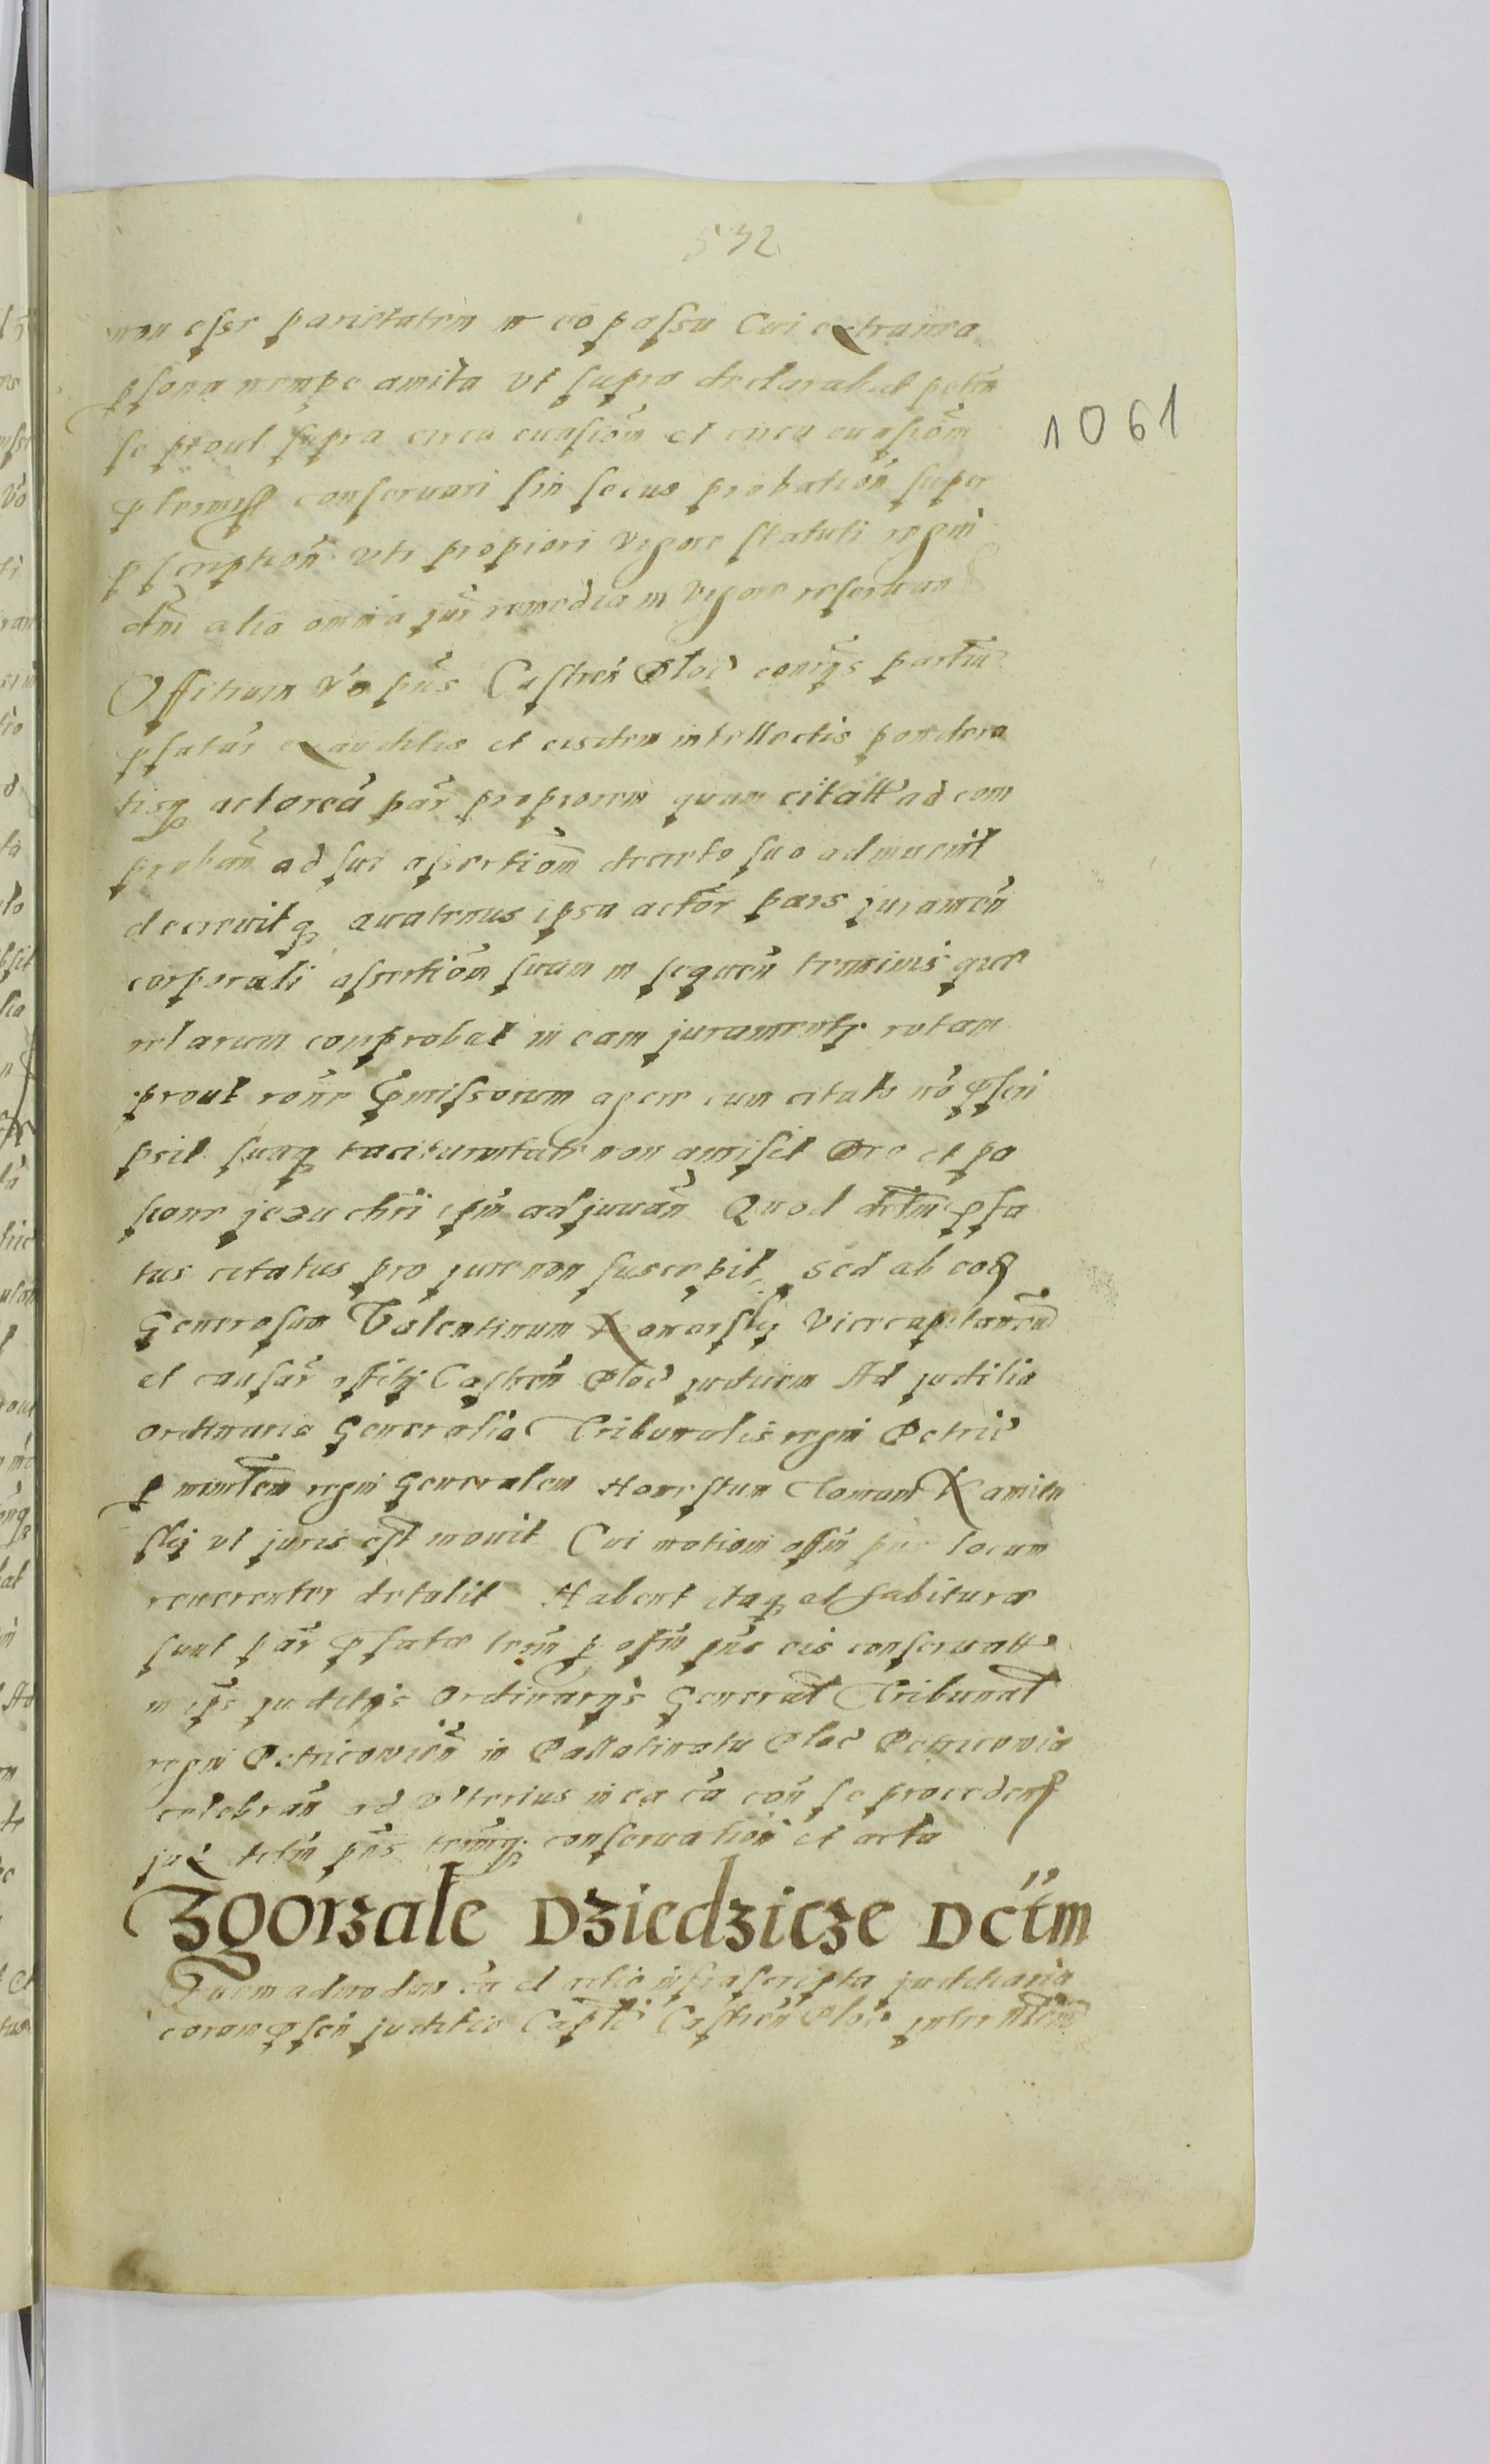 532
1061
non esse parietatem in eo passu Cui extranea
psona nempe amita vt supra declarabat peten
se prout supra circa euasiom et circa euasiom
ptermiss conseruari sin secus probation super
pscription vti propiori vigore statuti regni
alia omnia jur remedia in vigore reseruan
Offitium vo pns Castren Ploc partiu
psatar exauditis et eisdem intellectis pondera
tisq actorea par propiorem quam citatt ad com
proban ad sui assertiom decreto suo admuenit
decreuitq quatenus ipsa actor pars juramen
corporali assertiom suam in sequen terminis quer
relarum comprobat in eam juramenti rotam
prout rone pmissorum agere cum citato no pscri
psit suaq taciturnitate non amisit Pro et pa
sione jezu chri ipm adjuuan Quod detm psa
tus citatus pro jure non suscepit sed ab eod
Generosum Valentinum Konarskij Vicecapitaneu
et causar offitij Castren Ploc judicem Ad juditia
ordinaria Generalia Tribunalis regni Petric
p ministem regni Generalem Honestum Tomam Kamien
skij vt juris est mouit Cui motioni offm pns locum
reuerenter detulit Habent itaq et habitura
sunt par psatae term p offm pns eis conseruatt
in ips juditijs ordinarijs General Tribunal
regni Petricovien in Pallatinatu Ploc Petricovia
celebran ad vlterius in ea ca con se procedend
jud detm pns termiq conseruation et acta
Zgorzale Dziedzicze Dctm
Quemadmodum ca et actio infrascripta judiciaria
coram psen juditio Captl Castren Ploc inter